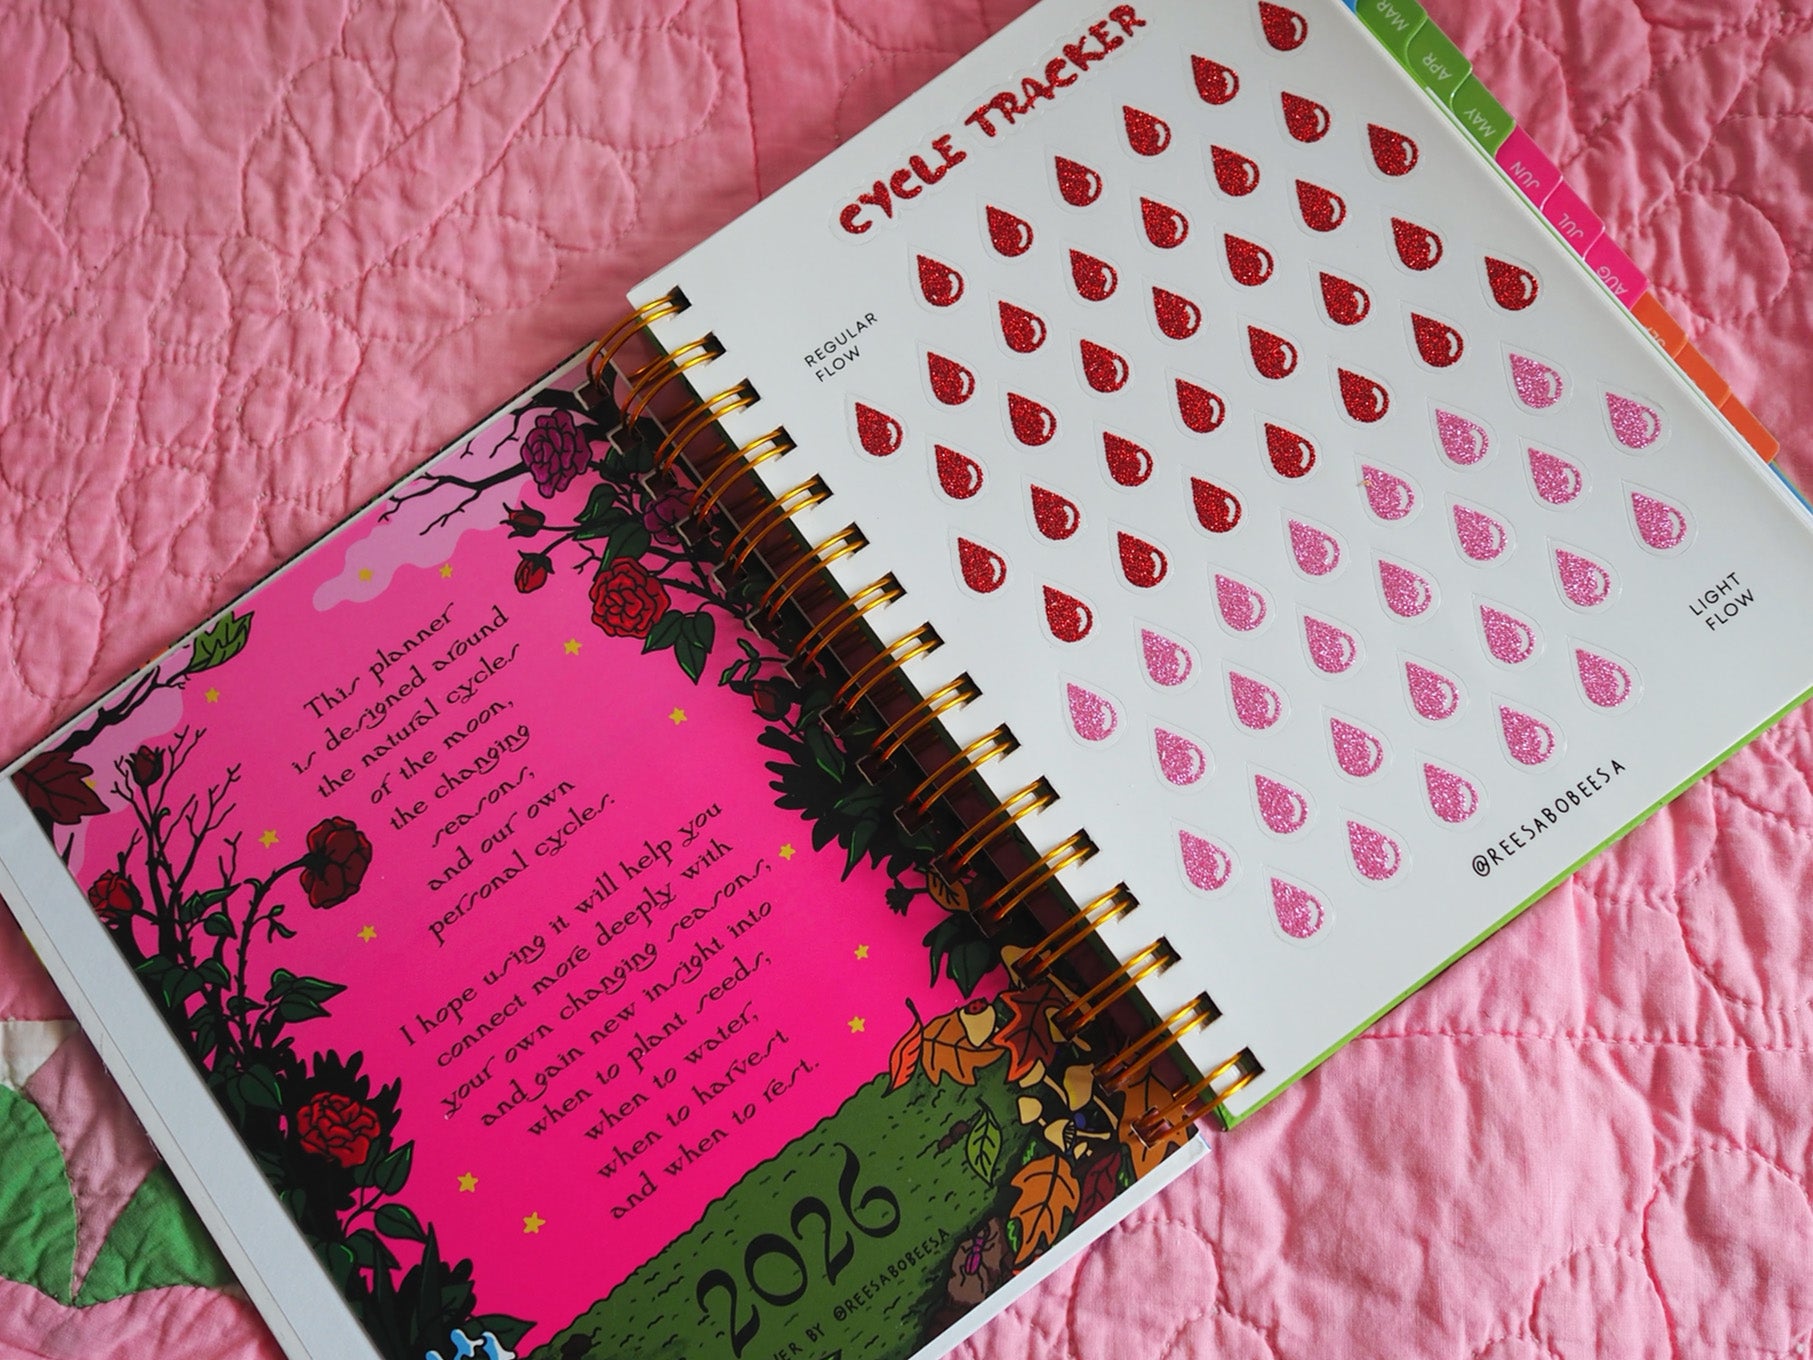 This planner
is designed around
the natural cycles
of the moon,
the changing
seasons,
and our own
personal cycles.
I hope using it will help you
connect more deeply with
your own changing seasons,
and gain new insight into
when to plant seeds,
when to water,
when to harvest
and when to rest.
2026
BY @REESABOBEESA
CYCLE TRACKER
REGULAR
FLOW
LIGHT
FLOW
@REESABOBEESA
MAR
APR
MAY
JUN
JUL
AUG